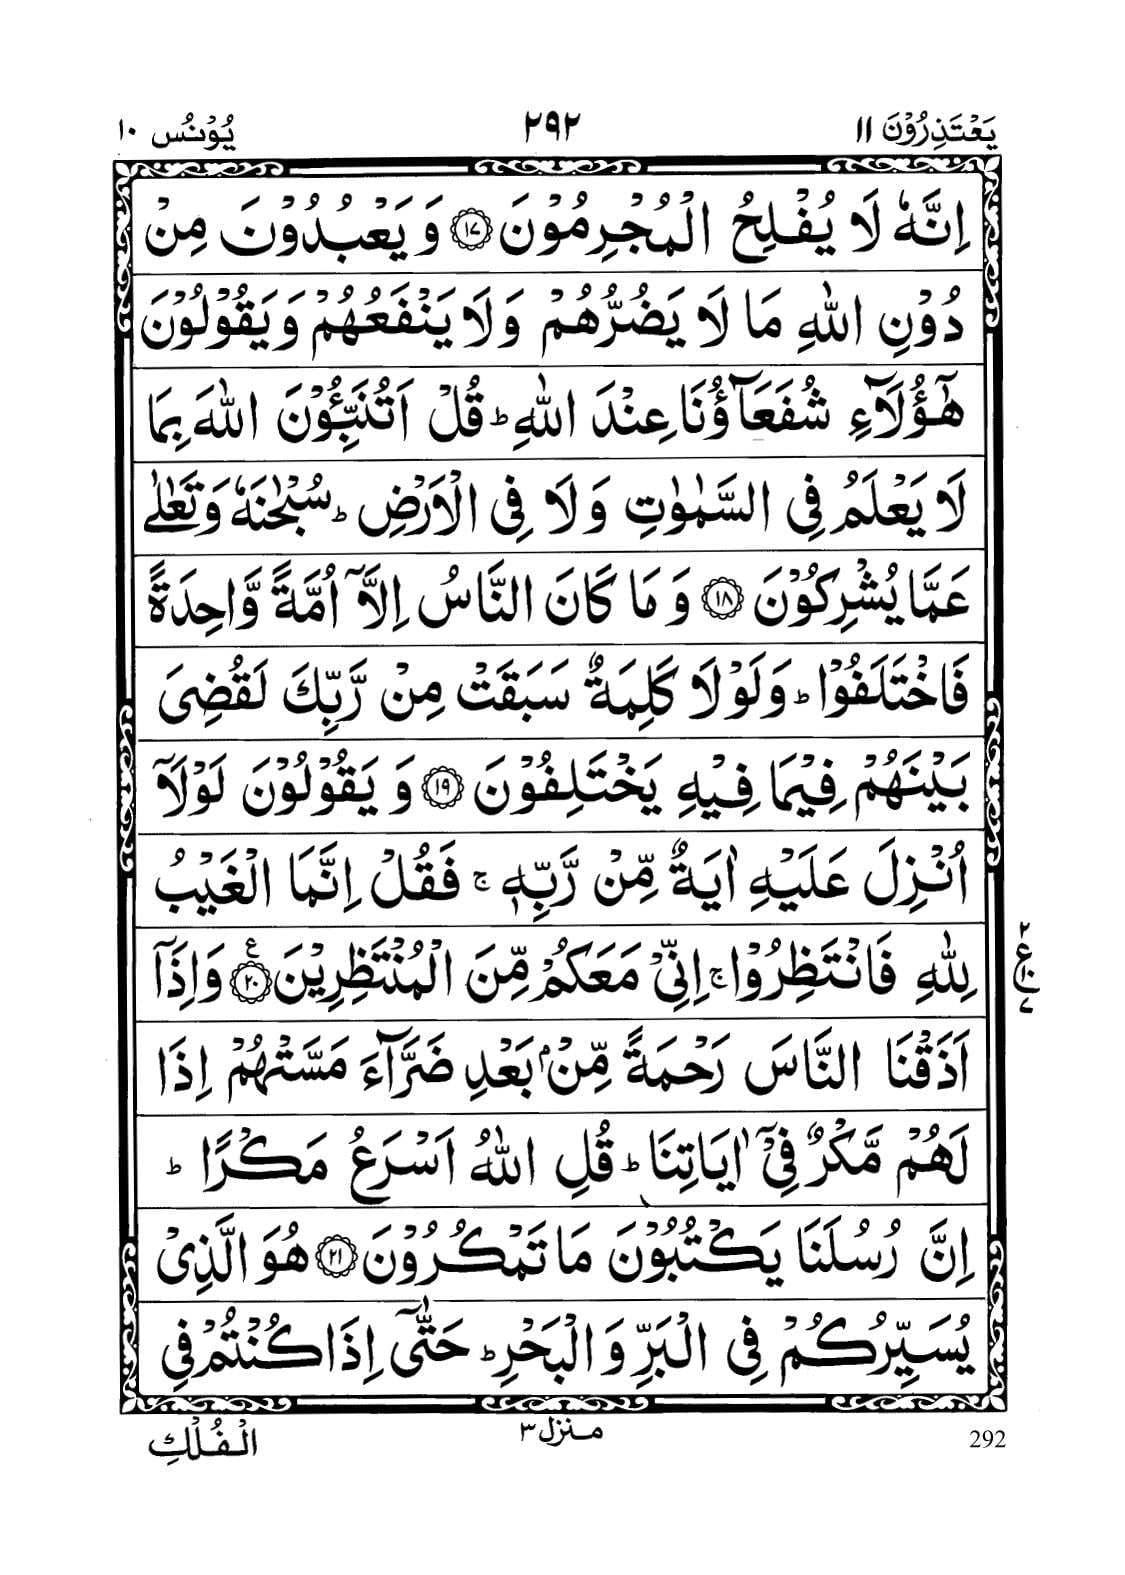 يَعْتَذِرُوْنَ ١١
٢٩٢
يُوْنُس ١٠
اِنَّهٗ لَا يُفْلِحُ الْمُجْرِمُوْنَ ⑰ وَيَعْبُدُوْنَ مِنْ
دُوْنِ اللّٰهِ مَا لَا يَضُرُّهُمْ وَلَا يَنْفَعُهُمْ وَيَقُوْلُوْنَ
هٰٓؤُلَآءِ شُفَعَآؤُنَا عِنْدَ اللّٰهِ ؕ قُلْ اَتُنَبِّـُٔوْنَ اللّٰهَ بِمَا
لَا يَعْلَمُ فِى السَّمٰوٰتِ وَلَا فِى الْاَرْضِ ؕ سُبْحٰنَهٗ وَتَعٰلٰى
عَمَّا يُشْرِكُوْنَ ⑱ وَمَا كَانَ النَّاسُ اِلَّآ اُمَّةً وَّاحِدَةً
فَاخْتَلَفُوْا ؕ وَلَوْلَا كَلِمَةٌ سَبَقَتْ مِنْ رَّبِّكَ لَقُضِىَ
بَيْنَهُمْ فِيْمَا فِيْهِ يَخْتَلِفُوْنَ ⑲ وَيَقُوْلُوْنَ لَوْلَآ
اُنْزِلَ عَلَيْهِ اٰيَةٌ مِّنْ رَّبِّهٖ ۚ فَقُلْ اِنَّمَا الْغَيْبُ
لِلّٰهِ فَانْتَظِرُوْا ۚ اِنِّىْ مَعَكُمْ مِّنَ الْمُنْتَظِرِيْنَ ⑳ ع وَاِذَآ
٢
ع
١٠
٧
اَذَقْنَا النَّاسَ رَحْمَةً مِّنْۢ بَعْدِ ضَرَّآءَ مَسَّتْهُمْ اِذَا
لَهُمْ مَّكْرٌ فِىْٓ اٰيَاتِنَا ؕ قُلِ اللّٰهُ اَسْرَعُ مَكْرًا ؕ
اِنَّ رُسُلَنَا يَكْتُبُوْنَ مَا تَمْكُرُوْنَ ㉑ هُوَ الَّذِىْ
يُسَيِّرُكُمْ فِى الْبَرِّ وَالْبَحْرِ ؕ حَتّٰٓى اِذَا كُنْتُمْ فِى
الْفُلْكِ
منزل ٣
292